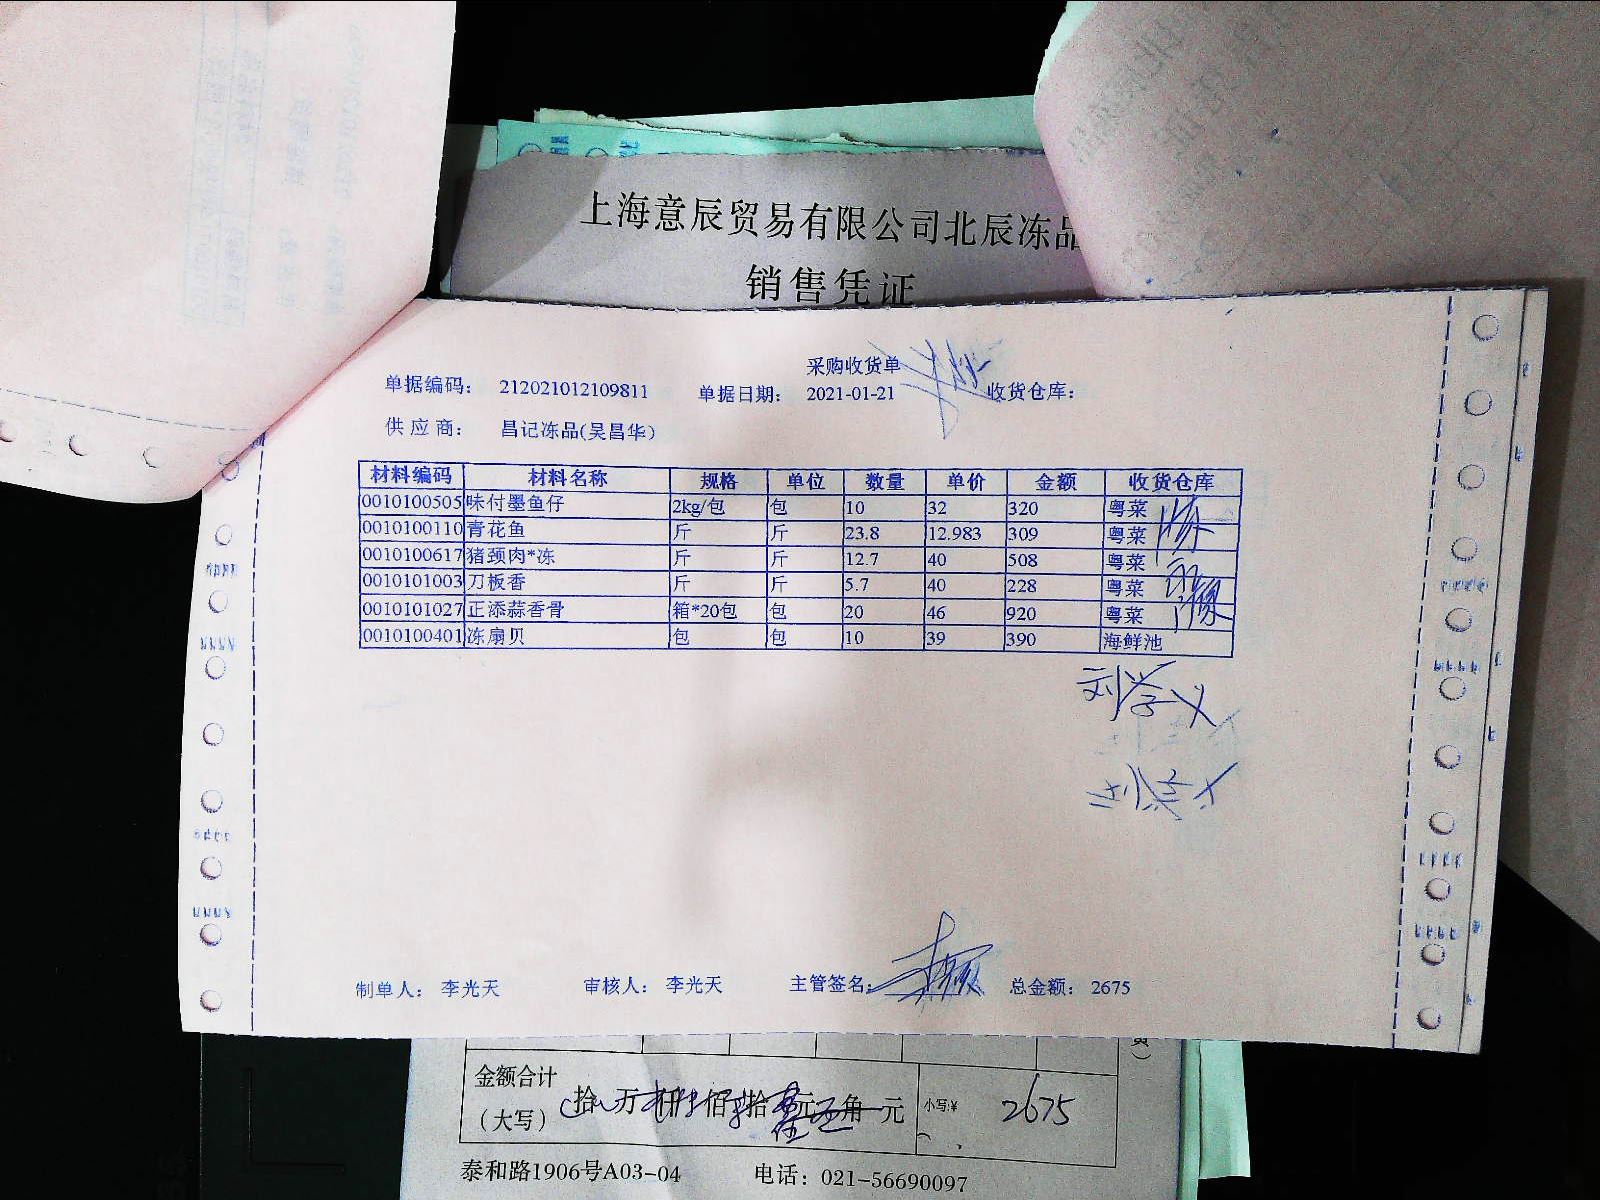 上海意辰贸易有限公司北辰冻品
销售凭证
采购收货单
单据编码： 212021012109811 单据日期： 2021-01-21 收货仓库：
供应商： 昌记冻品(吴昌华)
材料编码 材料名称 规格 单位 数量 单价 金额 收货仓库
0010100505 味付墨鱼仔 2kg/包 包 10 32 320 粤菜
0010100110 青花鱼 斤 斤 23.8 12.983 309 粤菜
0010100617 猪颈肉*冻 斤 斤 12.7 40 508 粤菜
0010101003 刀板香 斤 斤 5.7 40 228 粤菜
0010101027 正添蒜香骨 箱*20包 包 20 46 920 粤菜
0010100401 冻扇贝 包 包 10 39 390 海鲜池
刘学义
制单人： 李光天 审核人： 李光天 主管签名： 总金额： 2675
金额合计
（大写） 拾 万 仟 佰 拾 元 角 元 小写:¥ 2675
泰和路1906号A03-04 电话：021-56690097